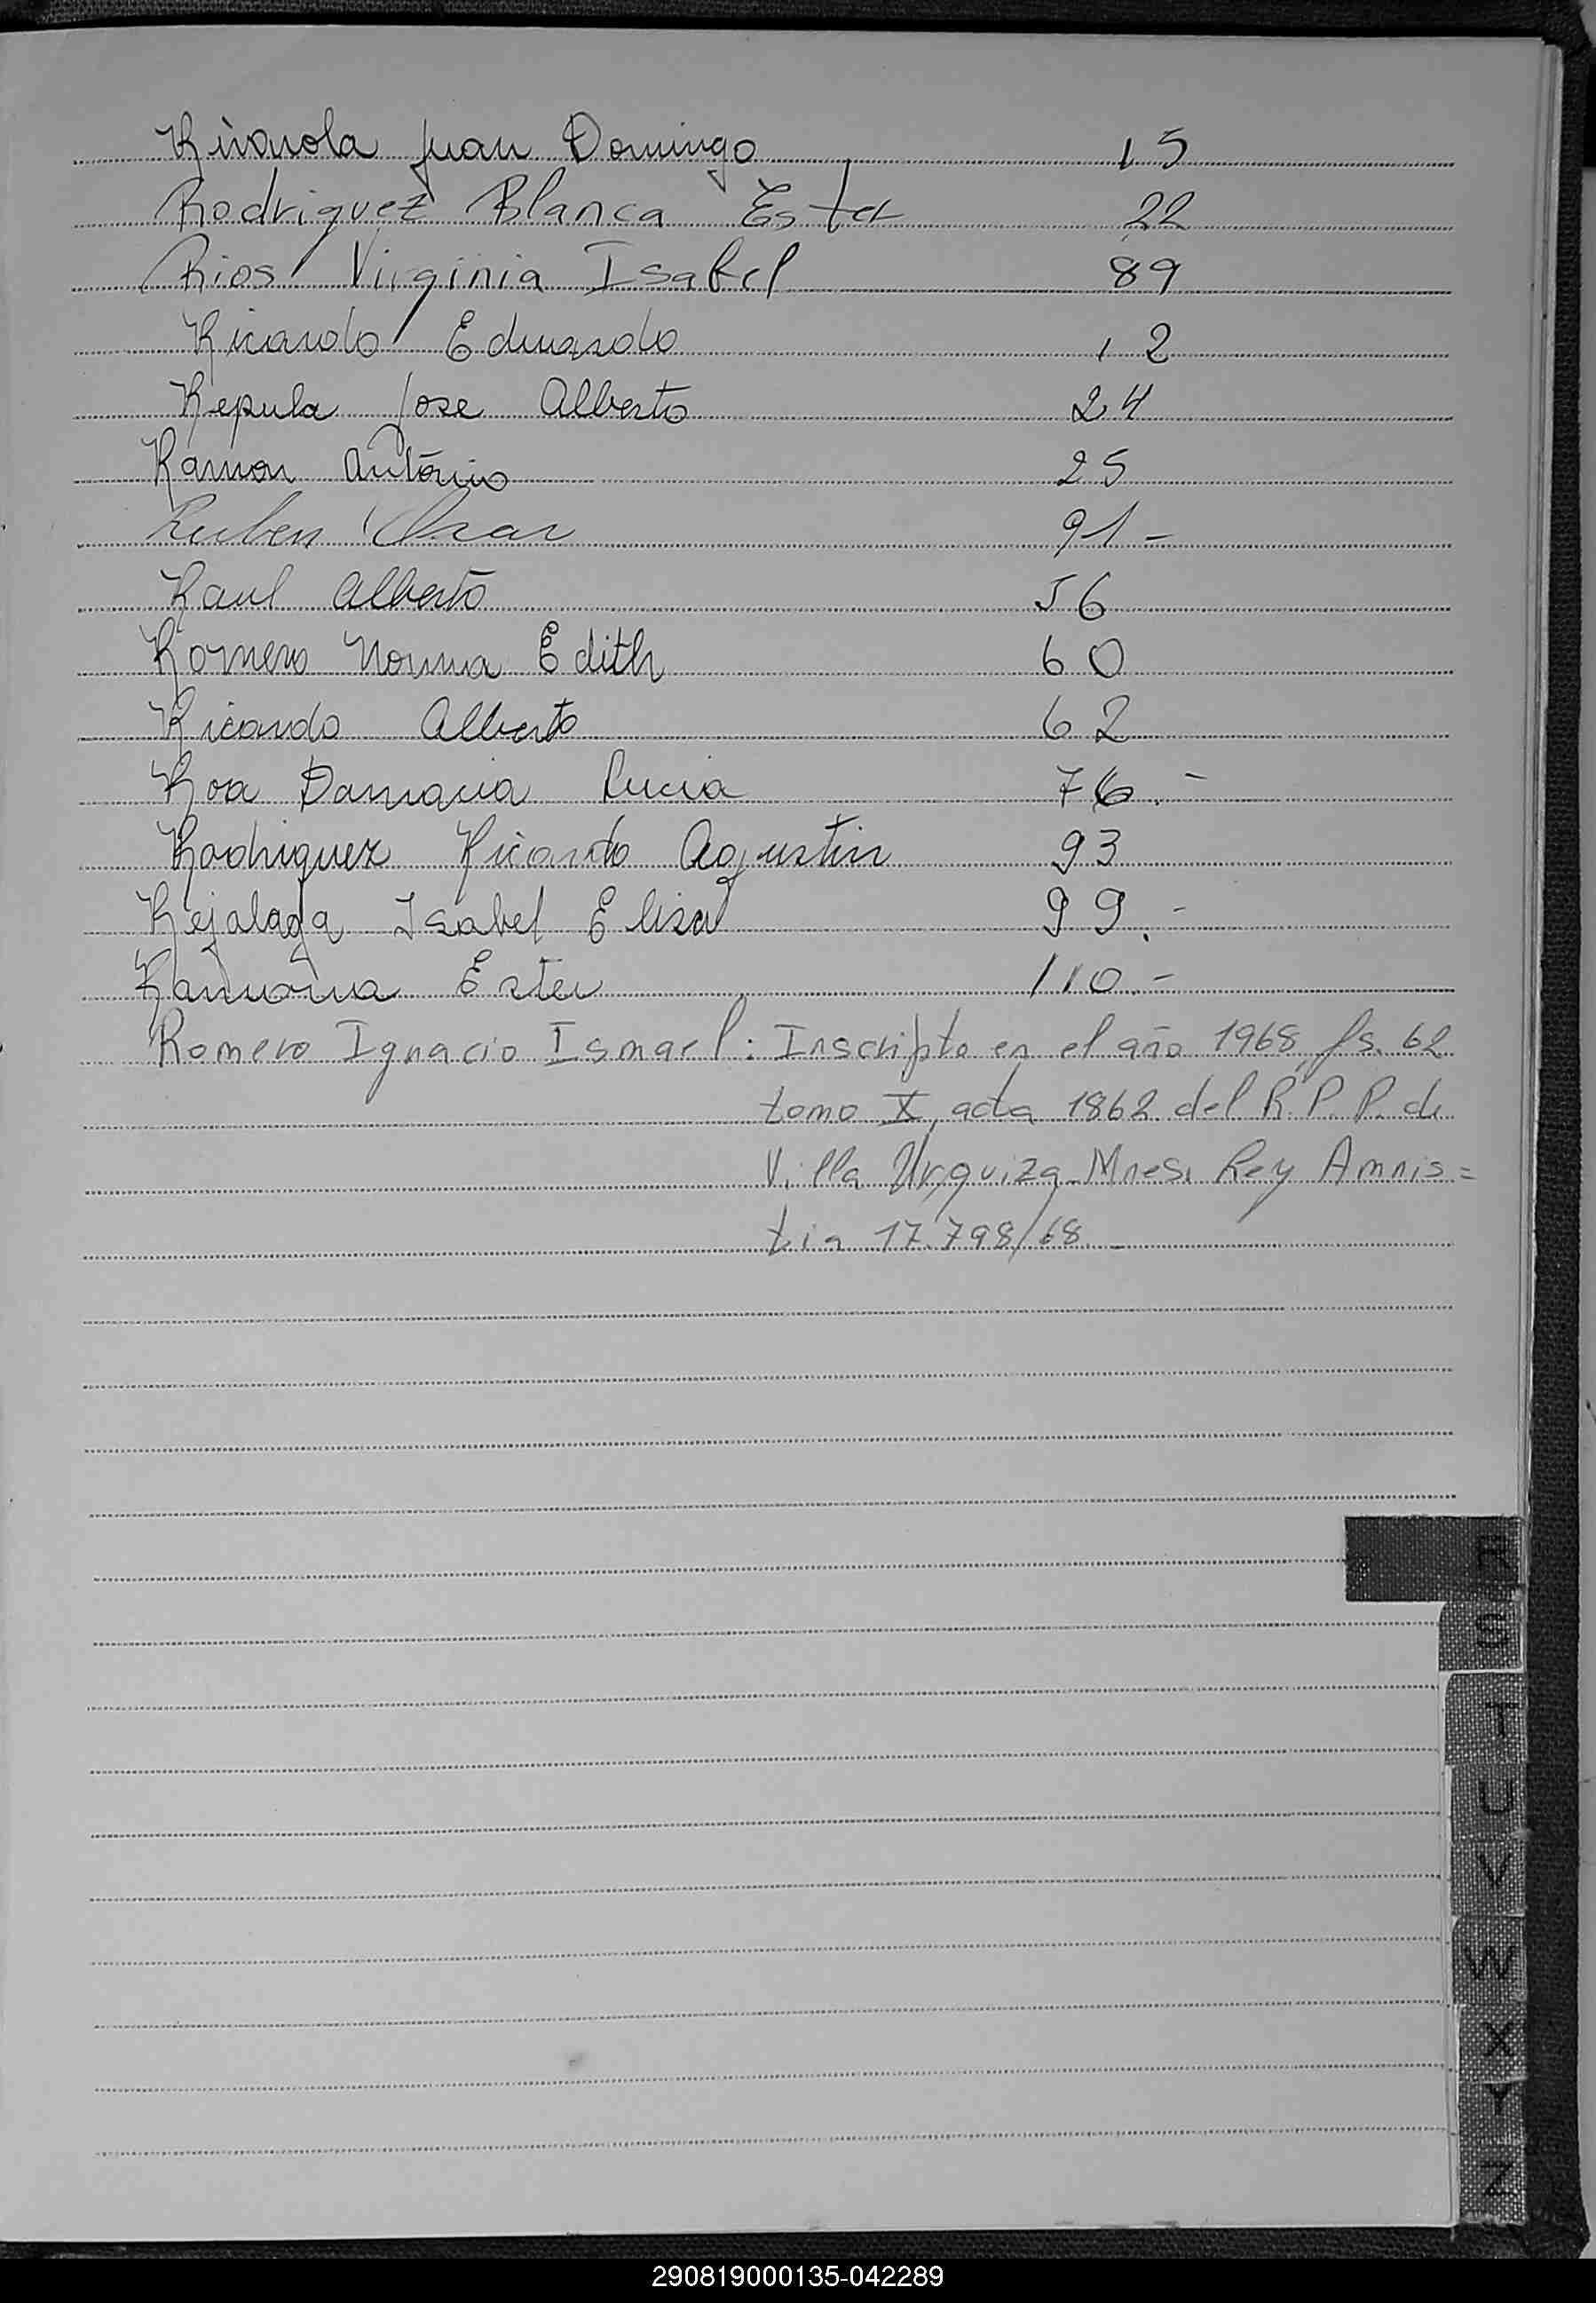 Riva Juan Domingo 15
Rodriguez Blanca Ester 22
Rios Virginia Isabel 89
Ricardo Eduardo 12
Repula Jose Alberto 24
Ramon Antonio 25
Ruben Oscar 91-
Raul Alberto 56
Romero Norma Edith 60
Ricardo Alberto 62
Roa Damacia Lucia 76.-
Rodriguez Ricardo Agustin 93
Rejalaga Isabel Elisa 99.-
Ramona Ester 110.-
Romero Ignacio Ismael: Inscripto en el año 1968, fs. 62
tomo X, acta 1862 del R.P.P. de
Villa Urquiza-Mnes. Ley Amnis=
tia 17.798/68.-
R
S
T
U
V
W
X
Y
Z
290819000135-042289